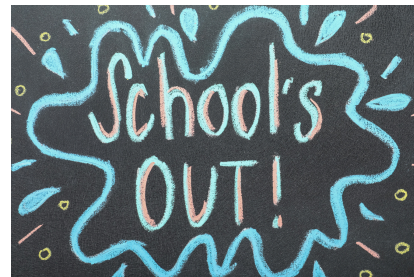 School's
OUT!